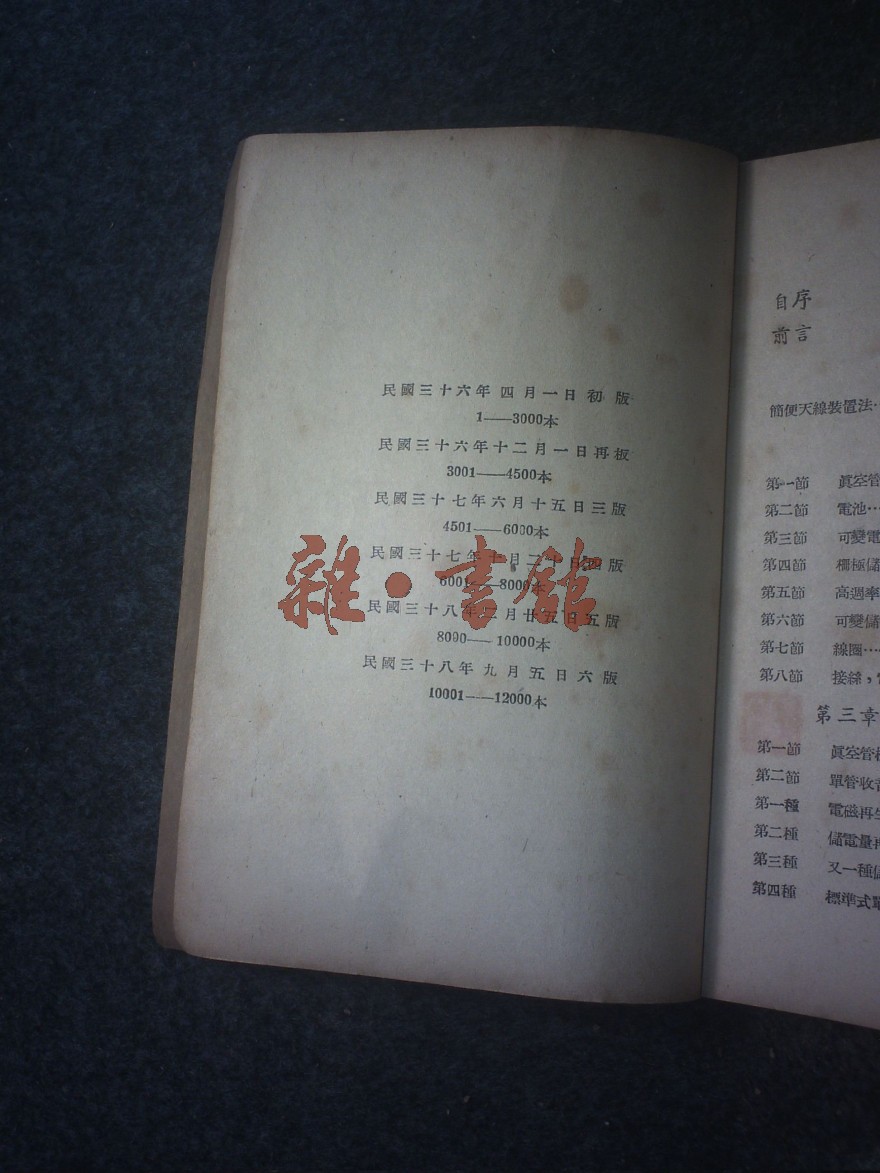 民國三十六年四月一日初版
1——3000本
民國三十六年十二月一日再板
3001——4500本
民國三十七年六月十五日三版
4501——6000本
民國三十七年十月二十日四版
6001——8000本
民國三十八年二月廿五日五版
8000——10000本
民國三十八年九月五日六版
10001——12000本
雜·書館
自序
前言
簡便天線裝置法…
第一節 眞空管
第二節 電池…
第三節 可變電
第四節 柵極儲
第五節 高週率
第六節 可變儲
第七節 線圈…
第八節 接線，
第三章
第一節 眞空管
第二節 單管收音
第一種 電磁再生
第二種 儲電量再
第三種 又一種儲
第四種 標準式單